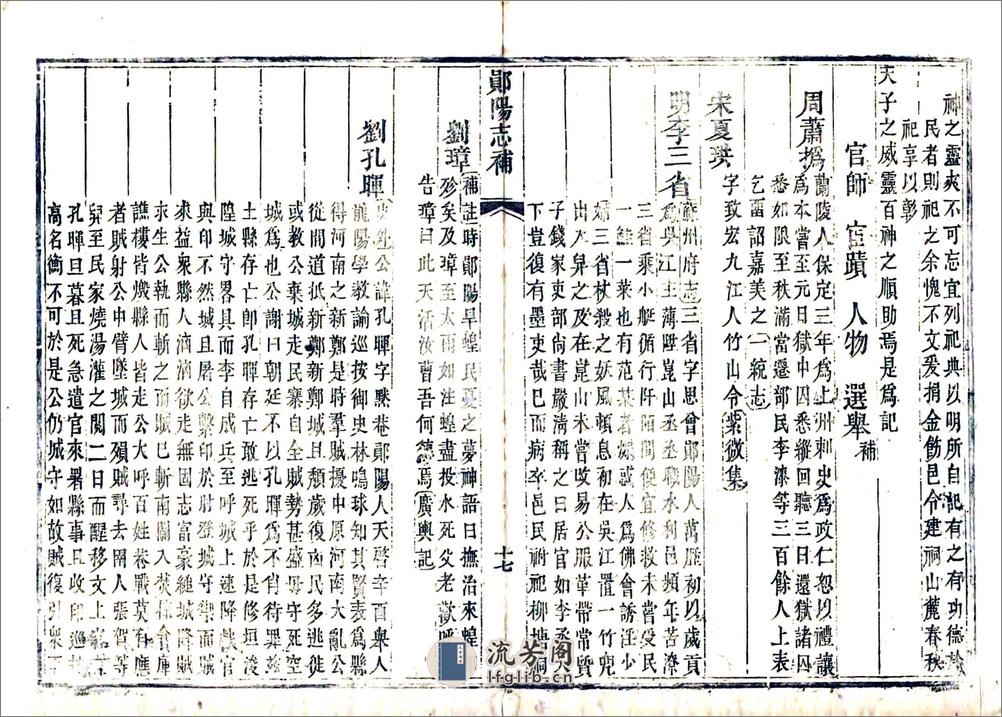 神之靈爽不可忘宜列祀典以明所自記有之有功德於
民者則祀之余愧不文爰捐金飭邑令建祠山麓春秋
祀享以彰
天子之威靈百神之順助焉是爲記
官師 宦蹟 人物 選舉補
周蕭撝 蘭陵人保定三年爲上州刺史爲政仁恕以禮讓
爲本嘗至元日獄中囚悉縱回聽三日還獄諸囚
悉如限至秩滿當還部民李漆等三百餘人上表
乞留詔嘉美之一統志
宋夏珙 字致宏九江人竹山令紫微集
明李三省 蘇州府志三省字思曾鄖陽人萬曆初以歲貢
爲吳江主薄歷崑山丞職水利邑頻年苦潦
三省乘小艇循行阡陌間便宜修救未嘗受民
一鮭一菜也有范某者爲惑人爲佛會誘淫小
婦三省杖殺之妖風頓息初在吳江置一竹兜
出入舁之及在崑山未嘗改易公服革帶常質
子錢家吏部尚書嚴清稱之曰居官如李丞
下豈復有墨吏哉已而病卒邑民祠祀柳塘祠
鄖陽志補
十七
劉璋 補註時鄖陽旱蝗民憂之夢神語曰撫治來蝗
殄矣及璋至大雨如注蝗盡投水死父老歡呼
告璋曰此天活汝曹吾何德焉廣輿記
劉孔暉 公諱孔暉字默菴鄖陽人天啓辛酉舉人
龍陽學教諭巡按御史林鳴球知其賢表爲縣
得河南之新鄭是時羣賊擾中原河南大亂公
從間道抵新鄭新鄭城且頹歲復凶民多逃徙
或教公棄城走民寨自全賊勢甚盛毋守死空
城爲也公謝曰朝廷不以孔暉爲不肖待罪茲
土縣存與存亡卽孔暉存亡敢逃死乎於是修垣浚
隍城守畧具而李自成兵至呼城上速降獻官
與印不然城且屠公繫印於肘登城守禦而賊
求益衆縣人洶洶欲走無固志富豪縋城降賊
求生公執而斬之而賊已斬南關入焚掠會庫
譙樓皆熾縣人皆走公大呼百姓巷戰莫有應
者賊射公中臂墜城而殞賊尋去閽人張賀等
舁至民家燒湯灌之閱二日而醒移文上臺言
孔暉旦暮且死急遣官來署縣事且收印巡撫
高名衡不可於是公仍城守如故賊復引衆
流芳阁
lfglib.cn